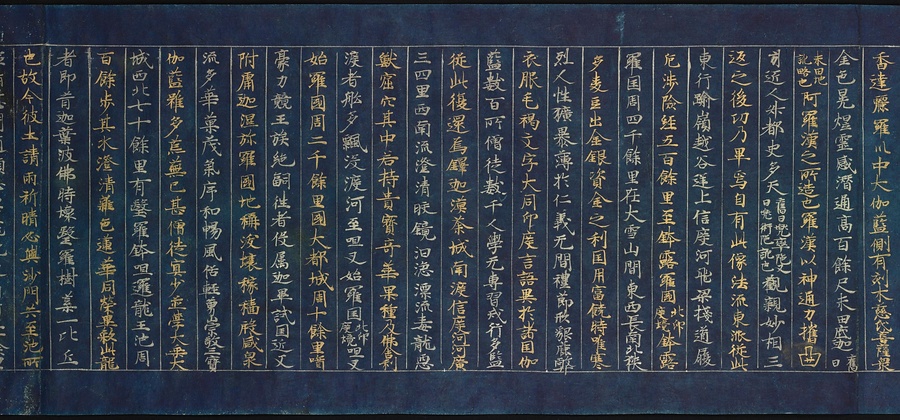 香達麗羅川中大伽藍側有刻木慈氏菩薩像
金色晃煜靈感潛通高百餘尺末田底迦舊曰
末田地訛略也阿羅漢之所造也羅漢以神通力攜
人升都史多天舊曰兜率陀又曰兜術陀訛也親觀妙相三
返之後功乃畢焉自有此像法流東派從此
東行踰嶺越谷逆上信度河飛梁棧道履
危涉險經五百餘里至鉢露羅國北印度境鉢露
羅国周四千餘里在大雪山間東西長南北狹
多麦豆出金銀資金之利国用富饒時唯寒
烈人性獷暴薄於仁義无聞禮節形貌麁弊
衣服毛褐文字大同印度言語異於諸国伽
藍數百所僧徒數千人學无專習戒行多藍
從此復還烏鐸迦漢荼城南渡信度河河廣
三四里西南流澄清皎鏡汩淴漂流毒龍惡
獸窟穴其中若持貴寶奇華果種及佛舍利
渡者船多飄沒渡河至呾叉始羅國北印度境呾叉
始羅國周二千餘里國大都城周十餘里酋
豪力競王族絕嗣往者役属迦畢試国近又
附庸迦濕弥羅國地稱沃壤稼穡殷盛泉
流多華菓茂氣序和暢風俗輕勇崇敬三寶
伽藍雖多荒蕪已甚僧徒寡少並學大乗大
城西北七十餘里有醫羅鉢呾羅龍王池周
百餘步其水澄清雜色蓮華同榮異彩此龍
者即昔迦葉波佛時壞醫羅樹苾蒭比丘
也故今彼土請雨祈晴必與沙門共至池所